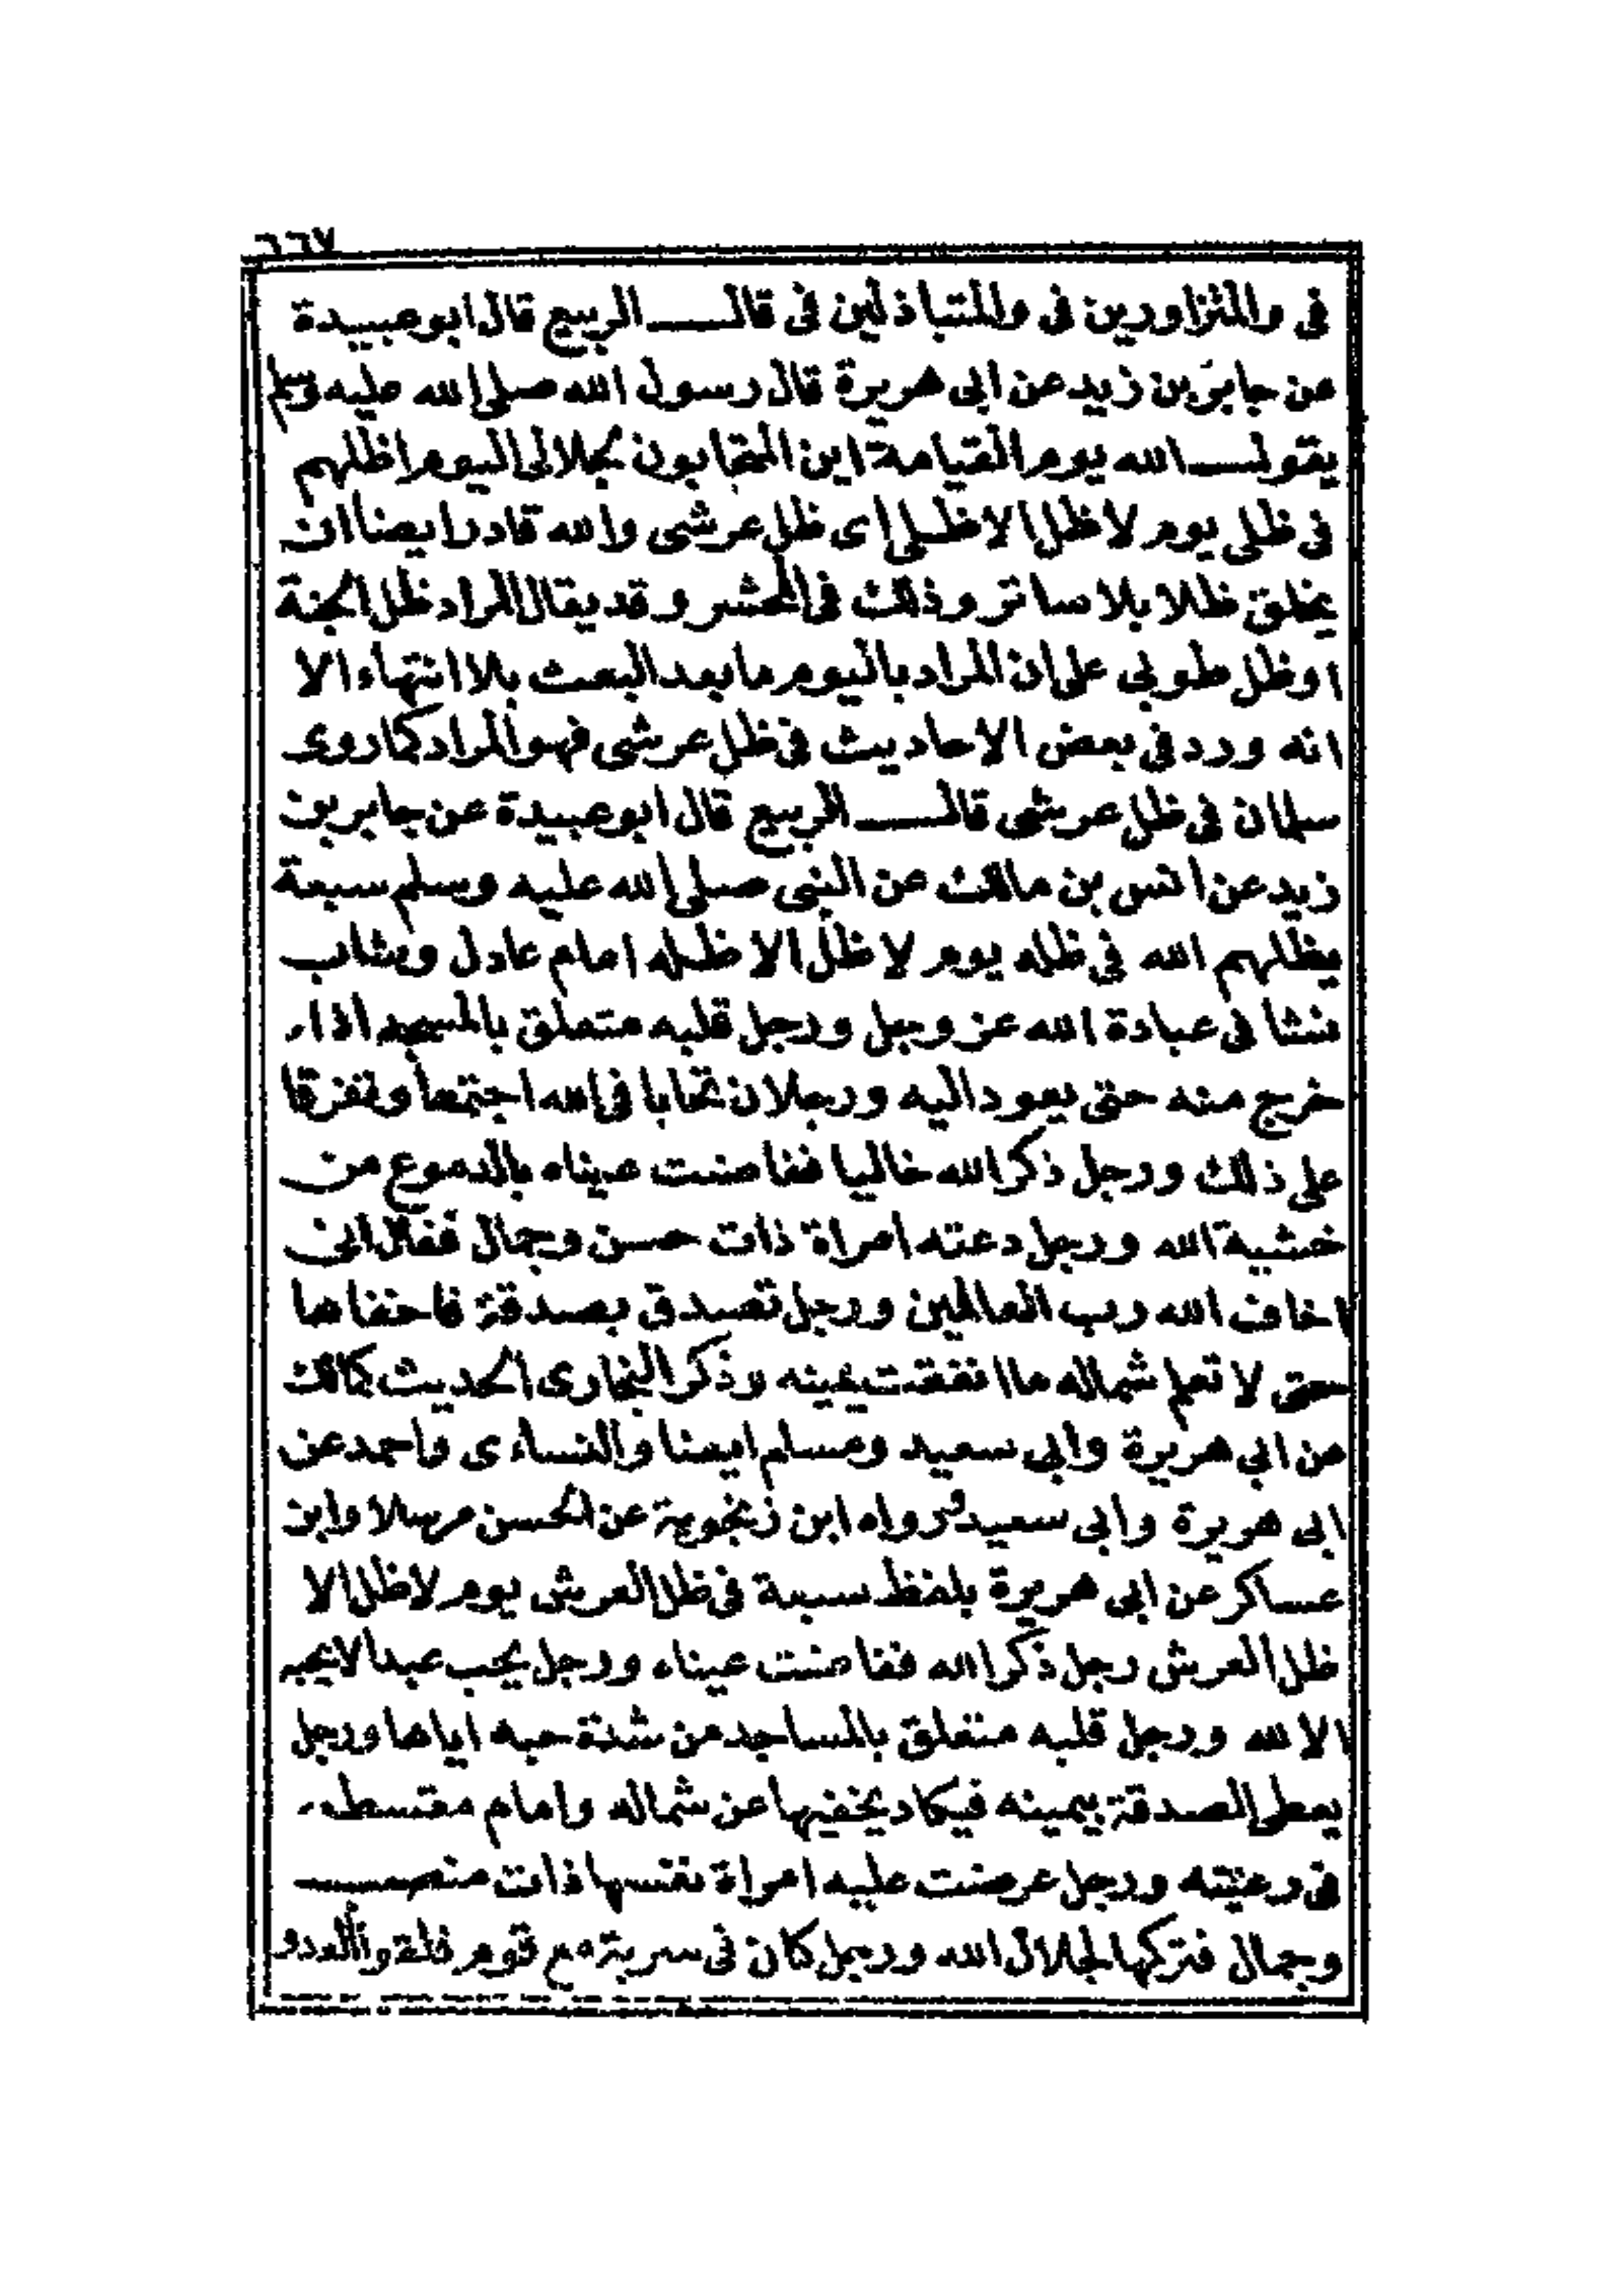 ٦٦٧
فى والمتزاورين فى والمتباذلين فى قالـــ الربيع قال ابو عبيدة
عن جابر بن زيد عن ابى هريرة قال رسول الله صلى الله عليه وسلم
يقولـــ الله يوم القيامة اين المتحابون بجلالى اليوم اظلهم
فى ظلى يوم لا ظل الا ظلى اى ظل عرشى والله قادر ايضا ان
يخلق ظلا بلا ساتر وذلك فى المحشر وقد يقال المراد ظل الجنة
او ظل طوبى على ان المراد باليوم ما بعد البعث بلا انتهاء الا
انه ورد فى بعض الاحاديث فى ظل عرشى فهو المراد كما روى
سلمان فى ظل عرشى قالـــ الربيع قال ابو عبيدة عن جابر بن
زيد عن انس بن مالك عن النبى صلى الله عليه وسلم سبعة
يظلهم الله فى ظله يوم لا ظل الا ظله امام عادل وشاب
نشا فى عبادة الله عز وجل ورجل قلبه متعلق بالمسجد اذا
خرج منه حتى يعود اليه ورجلان تحابا فى الله اجتمعا وتفرقا
على ذلك ورجل ذكر الله خاليا ففاضت عيناه بالدموع من
خشية الله ورجل دعته امراة ذات حسن وجمال فقال انى
اخاف الله رب العالمين ورجل تصدق بصدقة فاخفاها
حتى لا تعلم شماله ما انفقت يمينه وذكر البخارى الحديث كمالك
عن ابى هريرة وابى سعيد ومسلم ايضا والنساءى واحمد عن
ابى هريرة وابى سعيد ورواه ابن زنجوية عن الحسن مرسلا وابن
عساكر عن ابى هريرة بلفظ سبعة فى ظل العرش يوم لا ظل الا
ظل العرش رجل ذكر الله ففاضت عيناه ورجل يحب عبدا لا يحبه
الا لله ورجل قلبه متعلق بالمساجد من شدة حبه اياها ورجل
يعطى الصدقة بيمينه فيكاد يخفيها عن شماله وامام مقسط
فى رعيته ورجل عرضت عليه امراة نفسها ذات منصب
وجمال فتركها لجلال الله ورجل كان فى سرية مع قوم فلقوا العدو